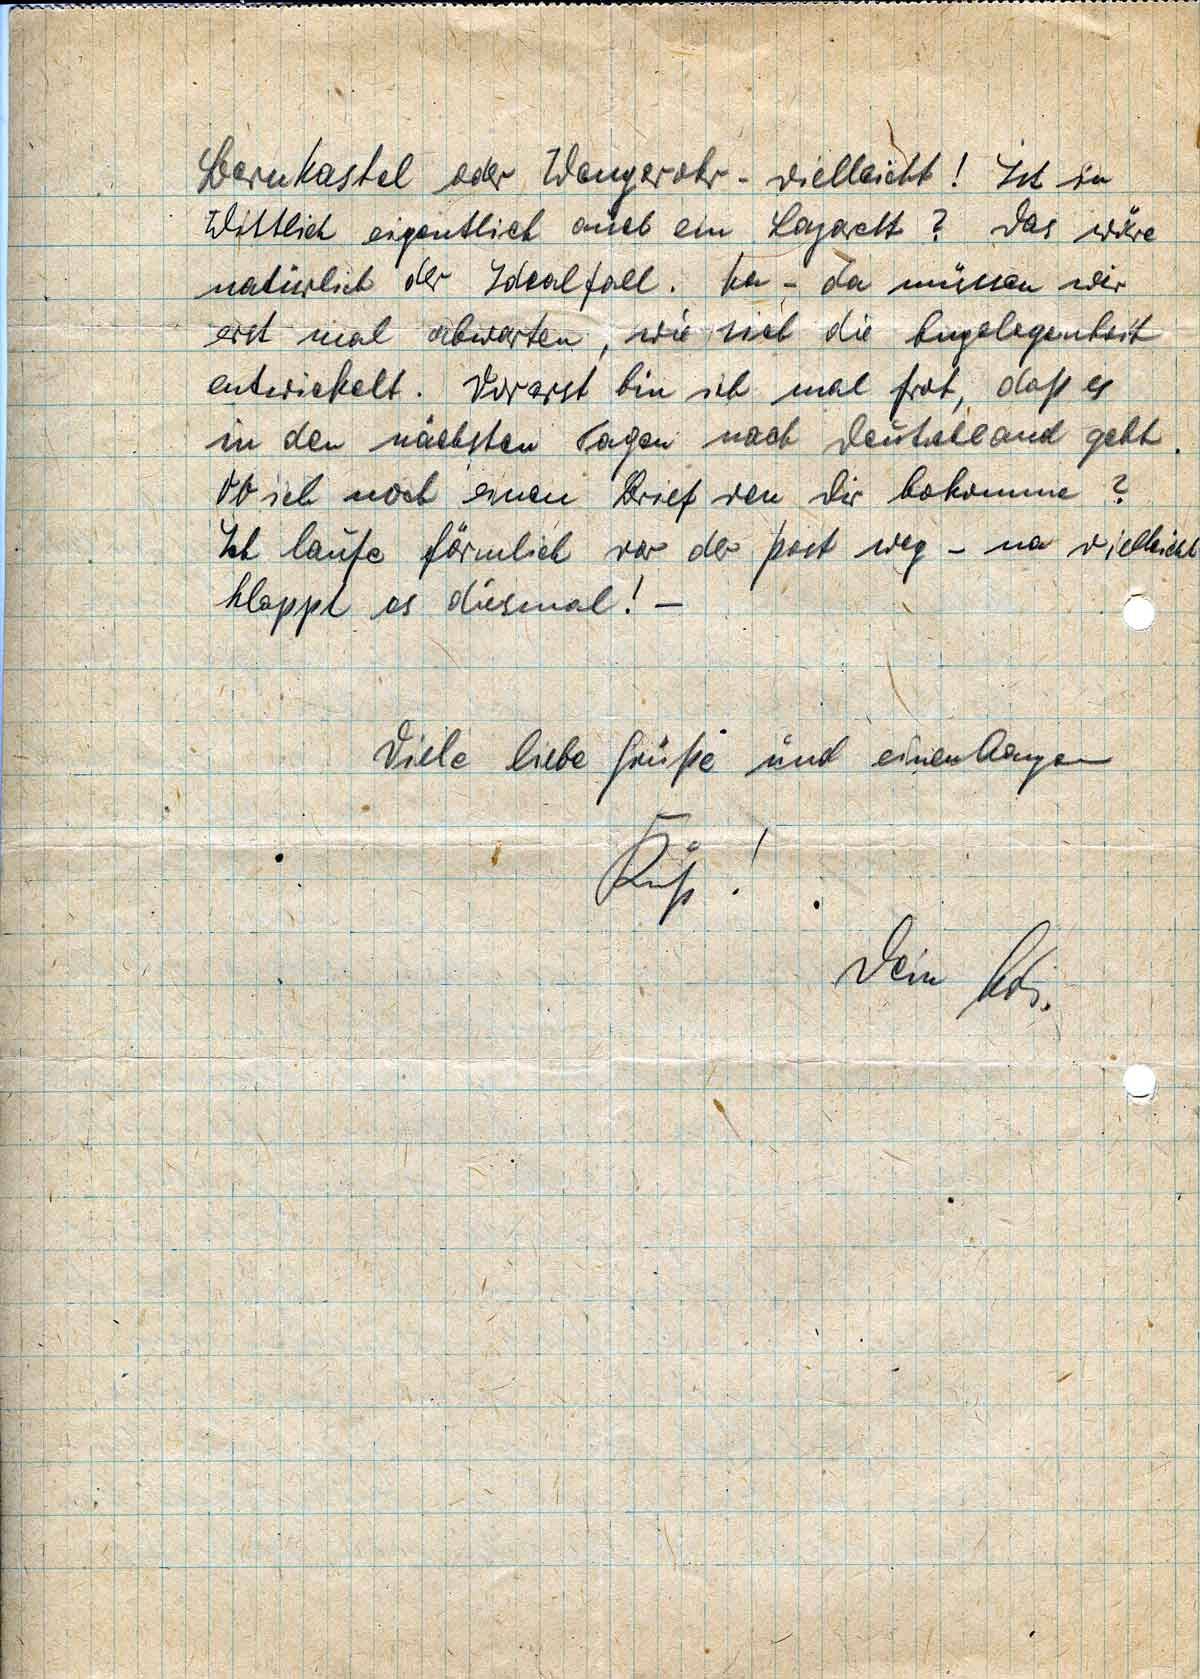 Bernkastel oder Wengerohr - vielleicht! Ist in
Wittlich eigentlich auch ein Lazarett? Das wäre
natürlich der Idealfall. Na - da müssen wir
erst mal abwarten, wie sich die Angelegenheit
entwickelt. Vorerst bin ich mal froh, daß es
in den nächsten Tagen nach Deutschland geht.
Ob ich noch einen Brief von Dir bekomme?
Ich laufe förmlich vor der Post weg - na vielleicht
klappt es diesmal! -
Viele liebe Grüße und einen langen
Kuß!
Dein